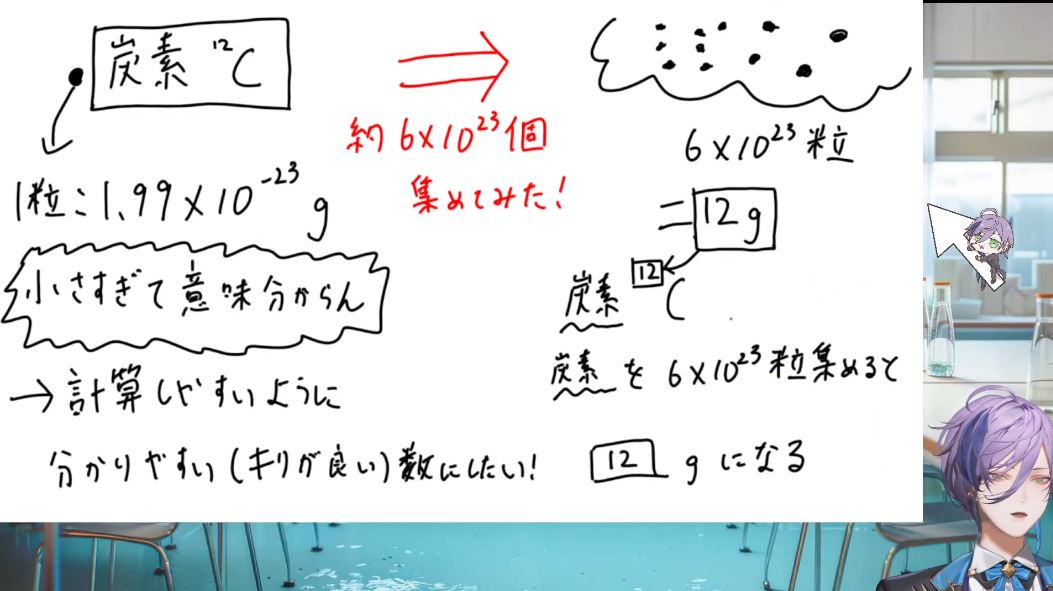 炭素 ¹²C
1粒：1.99×10⁻²³ g
小さすぎて意味分からん
→計算しやすいように
分かりやすい(キリが良い)数にしたい！
約6×10²³個
集めてみた！
6×10²³粒
=12g
炭素 ¹²C
炭素を6×10²³粒集めると
12 gになる